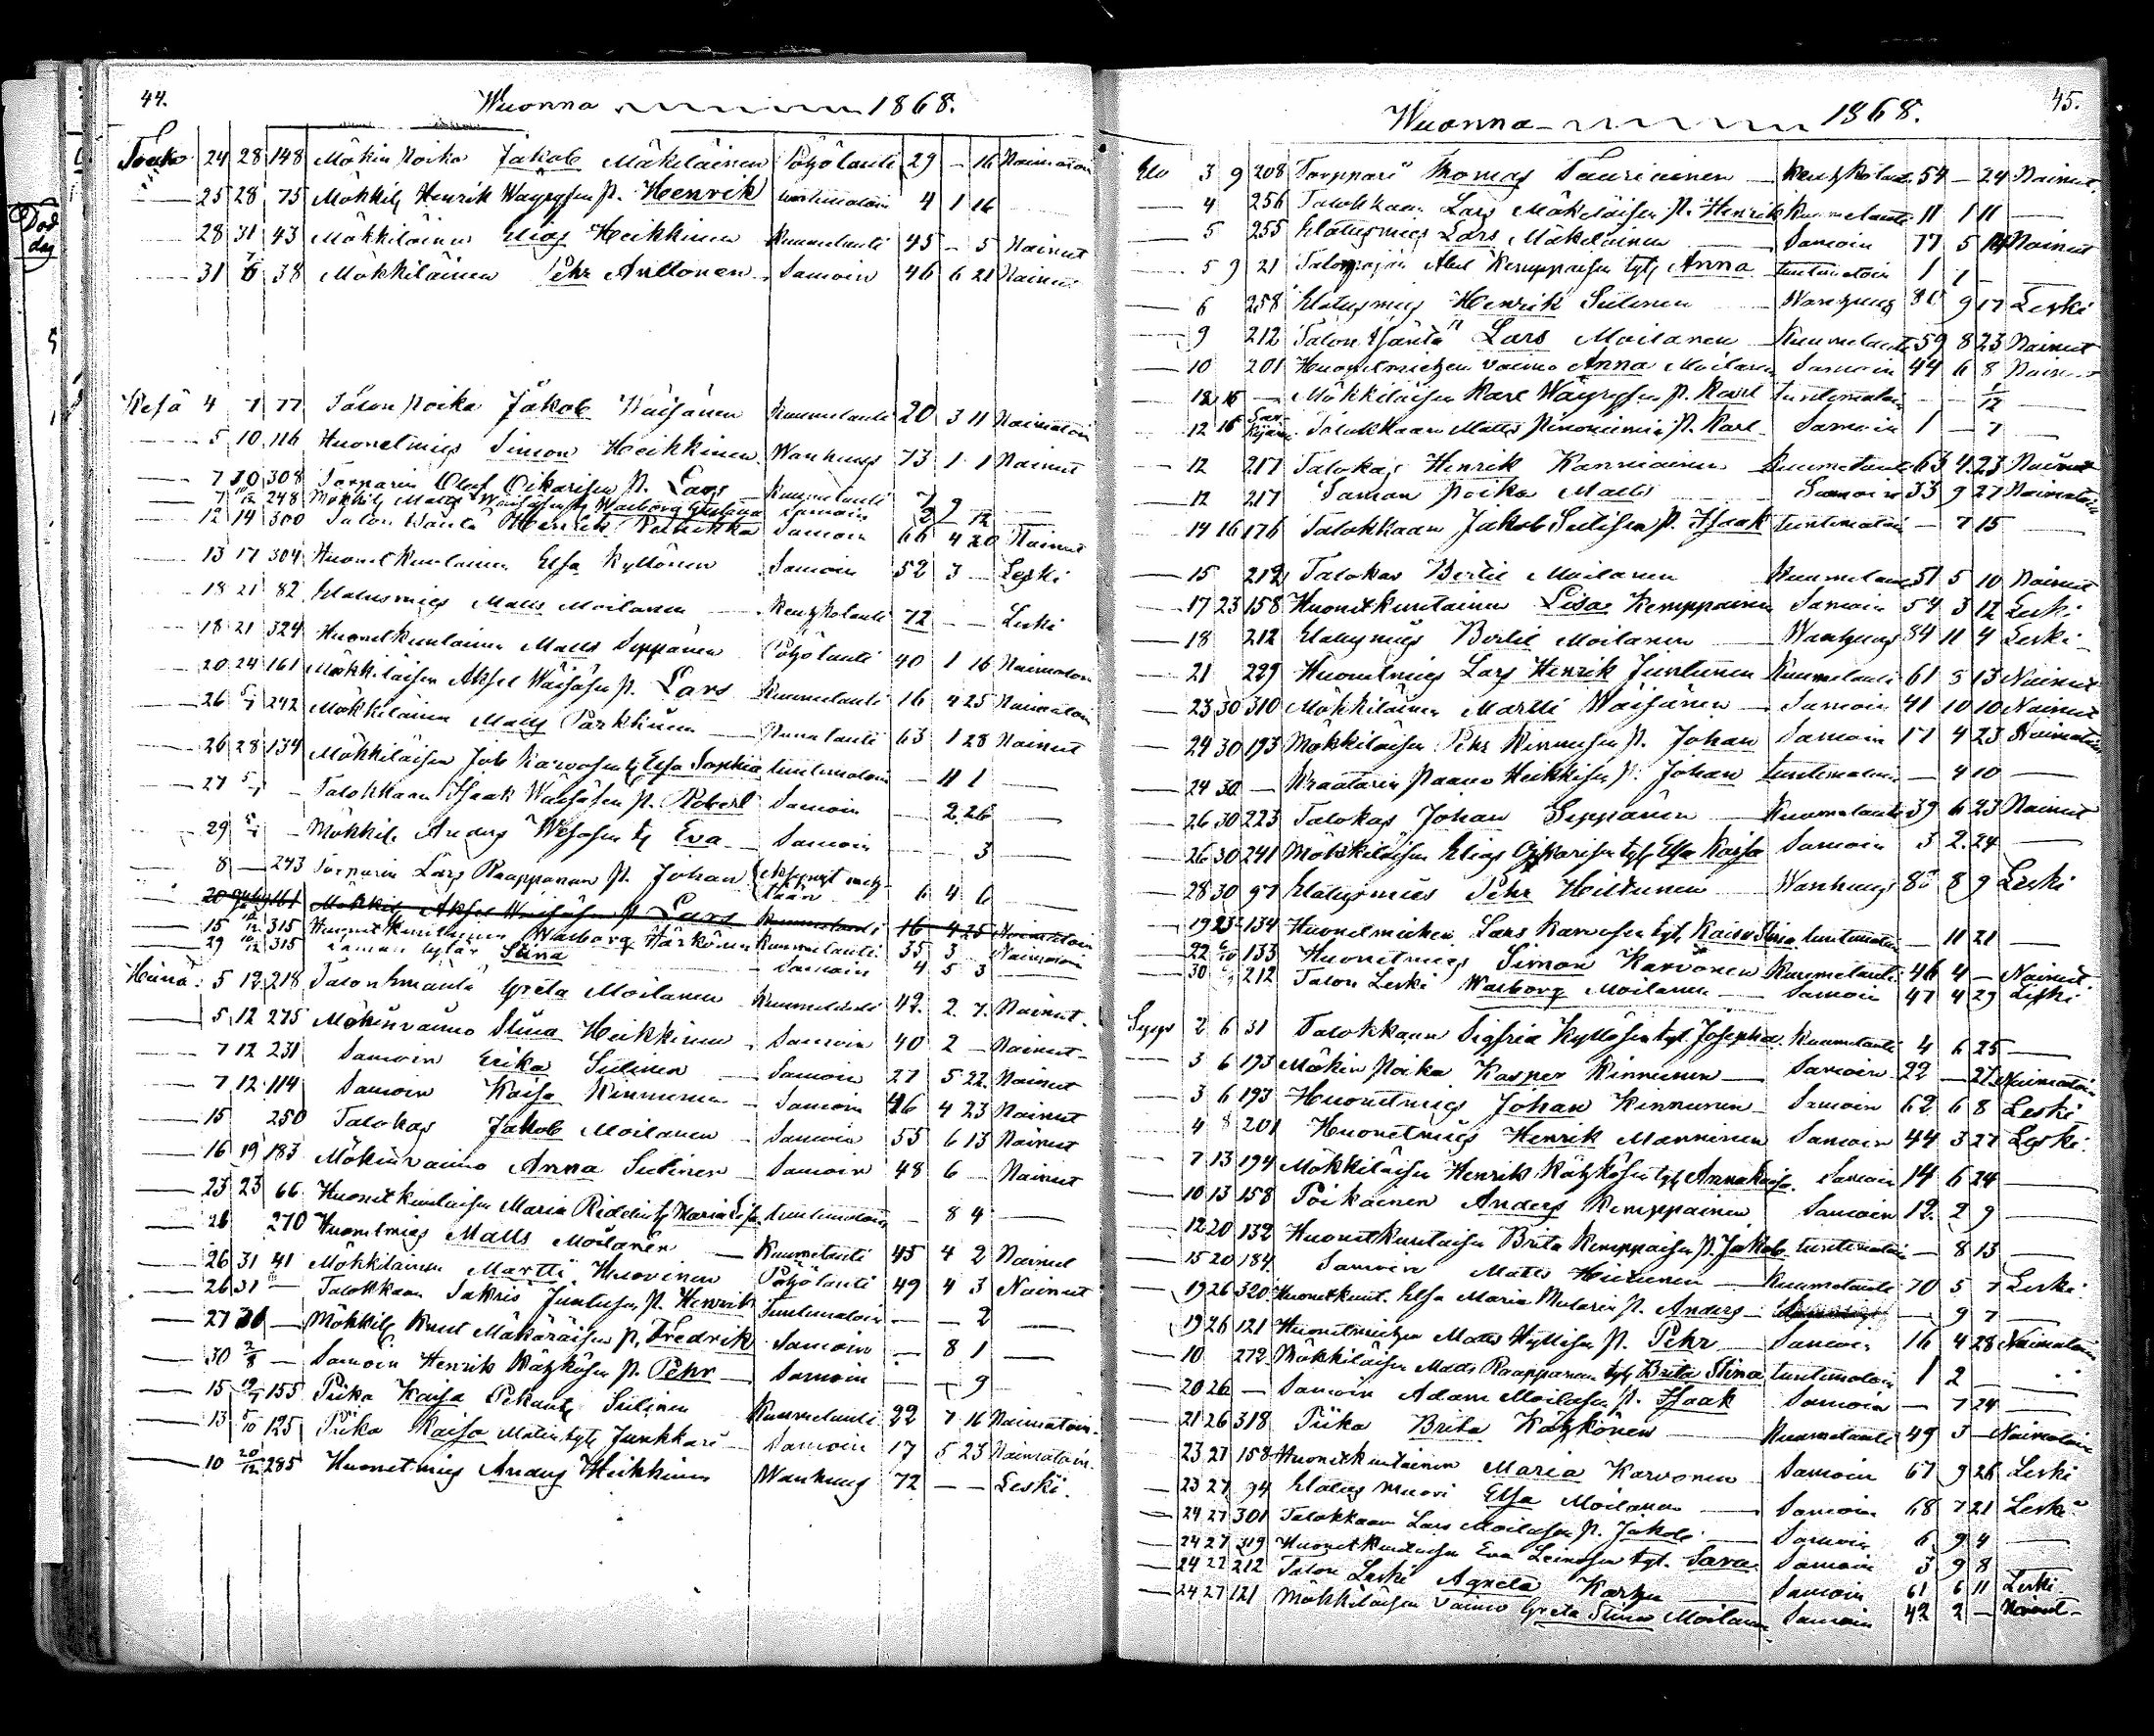 44.
Wuonna 1868.
Touko 24 28 148 Mökin poika Jakob Mäkeläinen Pötjötauti 29 - 16 Naimatoin
25 28 75 Mökkil Henrik Wäyrysen p. Henrik tuntematoin 4 1 16
28 31 43 Mökkiläinen Elias Heikkinen Kuumetauti 45 - 5 Nainut
31 38 Mökkiläinen Pehr Anttonen Samoin 46 6 21 Nainut
Kesä 4 7 77 Talon poika Jakob Wäisänen Kuumetauti 20 3 11 Naimatoin
5 10 116 Huonetmies Simon Heikkinen Wanhuus 73 1 1 Nainut
7 10 308 Torparin Olof Oikarisen p. Lars Kuumetauti 7 9
7 10/12 248 Mökkil Matts Wäisäsen t. Walborg Gustava Samoin 2 - 12
12 14 300 Talon Isäntä Henrik Samoin 66 4 20 Nainut
13 17 304 Huonetkuntainen Elsa Kyllönen Samoin 52 3 - Leski
18 21 82 Elatusmies Matts Moilanen Keuhkotauti 72 - - Leski
18 21 324 Huonetkuntainen Matts Seppänen Pötjötauti 40 1 16 Naimatoin
20 24 161 Mökkiläisen Aksel Wäisäsen p. Lars Kuumetauti 16 4 25 Naimatoin
26 5/7 242 Mökkiläinen Matts Parkkinen Punatauti 63 1 28 Nainut
26 28 134 Mökkiläisen Job Karvosen t. Elsa Sophia tuntematoin - 11 1
27 5/7 - Talokkaan Isaak Wäisäsen p. Robert Samoin - 2 26
29 5/7 - Mökkil. Anders Wesasen t. Eva Samoin 3
8 - 243 Torparin Lars Raappanan p. Johan 6 4 6
161 Mökkil Aksel Wäisäsen p. Lars Kuumetauti 16 4 25 Naimatoin
15 10/12 315 Huonetkuntainen Walborg Härkönen Kuumetauti 35 3 - Naimatoin
29 10/12 315 Saman tytär Stina Samoin 4 5 3
Heinä 5 12 218 Talon Emäntä Greta Moilanen Kuumetauti 42 2 7 Nainut
5 12 275 Mökinvaimo Stina Heikkinen Samoin 40 2 - Nainut
7 12 231 Samoin Erika Sutinen Samoin 27 5 22 Nainut
7 12 114 Samoin Kaisa Kinnunen Samoin 46 4 23 Nainut
15 250 Talokas Jakob Moilanen Samoin 55 6 13 Nainut
16 19 183 Mökinvaimo Anna Sutinen Samoin 48 6 - Nainut
23 23 66 Huonetkuntaisen Maria tuntematoin - 8 4
26 270 Huonetmies Matts Moilanen Kuumetauti 45 4 2 Nainut
26 31 41 Mökkiläinen Martti Huovinen Pötjötauti 49 4 3 Nainut
26 31 - Talokkaan Sakris Juntusen p. Henrik Tuntematoin - - 2
27 31 - Mökkil Knut Mäkäräisen p. Fredrik Samoin - 8 1
30 2/8 - Samoin Henrik Kätkösen p. Pehr Samoin - - 9
15 155 Piika Kaisa Sutinen Kuumetauti 22 7 16 Naimatoin
13 5/10 125 Piika Kaisa Matintyt Junkkari Samoin 17 5 23 Naimatoin
10 20/12 285 Huonetmies Anders Heikkinen Wanhuus 72 - - Leski
45.
Wuonna 1868.
Elo 3 9 208 Torppari Thomas Tauriainen Keuhkotauti 54 - 24 Nainut
4 256 Talokkaan Lars Mäkeläisen p. Henrik Kuumetauti 11 1 11
5 255 Elatusmies Lars Mäkeläinen Samoin 77 5 14 Nainut
5 9 21 Abel Kemppaisen tyt. Anna tuntematoin 1 1 -
6 258 Elatusmies Henrik Sutinen Wanhuus 80 9 17 Leski
9 212 Talon Isäntä Lars Moilanen Kuumetauti 59 8 23 Nainut
10 201 Huonetmiehen vaimo Anna Moilanen Samoin 44 6 8 Nainut
12 16 - Mökkiläisen Karl Wäyrysen p. Karl tuntematoin - - 1/12
12 16 Talokkaan Matts p. Karl Samoin 1 - 7
12 217 Talokas Henrik Kanniainen Kuumetauti 63 4 23 Nainut
12 217 Saman poika Matts Samoin 33 9 27 Naimatoin
14 16 176 Talokkaan Jakob Sutisen p. Isaak tuntematoin - 7 15
15 212 Talokas Bertil Moilanen Kuumetauti 51 5 10 Nainut
17 23 158 Huonetkuntainen Lisa Kemppainen Samoin 54 3 12 Leski
18 212 Elatusmies Bertil Moilanen Wanhuus 84 11 4 Leski
21 229 Huonetmies Lars Henrik Juntunen Kuumetauti 61 5 13 Nainut
23 30 310 Mökkiläinen Martti Wäisänen Samoin 41 10 10 Nainut
24 30 193 Mökkiläisen Pehr Kinnusen p. Johan Samoin 17 4 23 Naimatoin
24 30 - Kraatarin Paavo Heikkisen p. Johan tuntematoin - 4 10
26 30 223 Talokas Johan Seppänen Kuumetauti 39 6 23 Nainut
26 30 241 Mökkiläisen Elias Oikarisen tyt. Elsa Kaisa Samoin 3 2 24
28 30 97 Elatusmies Pehr Hiltunen Wanhuus 80 8 9 Leski
19 23 134 Huonetmiehen Lars Karvosen tyt. Kaisa Stina tuntematoin - 11 21
22 133 Huonetmies Simon Karvonen Kuumetauti 46 4 - Nainut
30 212 Talon Leski Walborg Moilanen Samoin 47 4 29 Leski
Syys 2 6 31 Talokkaan Sigfrid Kyllösen tyt. Josephina Kuumetauti 4 6 25
3 6 193 Mökin poika Kasper Kinnunen Samoin 22 - 27 Naimatoin
3 6 193 Huonetmies Johan Kinnunen Samoin 62 6 8 Leski
4 8 201 Huonetmies Henrik Manninen Samoin 44 3 27 Leski
7 13 194 Mökkiläisen Henrik Kätkösen tyt. Anna Kaisa Samoin 14 6 24
10 13 158 Poikainen Anders Kemppainen Samoin 12 2 9
12 20 132 Huonetkuntaisen Brita Kemppaisen p. Jakob tuntematoin - 8 13
15 20 184 Samoin Matts Hiltunen Kuumetauti 70 5 7 Leski
19 26 320 Huonetkunt. Elsa Maria p. Anders - 9 7
19 26 121 Huonetmiehen Matts Kyllisen p. Pehr Samoin 16 4 28 Naimatoin
10 272 Mökkiläisen Matts Raappanan tyt. Brita Stina tuntematoin 1 2 -
20 26 - Samoin Adam Moilasen p. Isaak Samoin - 7 24
21 26 318 Piika Brita Kätkönen Kuumetauti 49 3 - Naimatoin
23 27 158 Huonetkuntainen Maria Karvonen Samoin 67 9 26 Leski
23 27 94 Elatus muori Elsa Moilanen Samoin 68 7 21 Leski
24 27 301 Talokkaan Lars Moilasen p. Jakob Samoin 6 9 4
24 27 319 Huonetkuntaisen Eva Leinosen tyt. Sara Samoin 3 9 8
24 27 212 Talon Leski Agneta Samoin 61 6 11 Leski
24 27 121 Mökkiläisen vaimo Greta Stina Moilanen Samoin 42 2 - Nainut